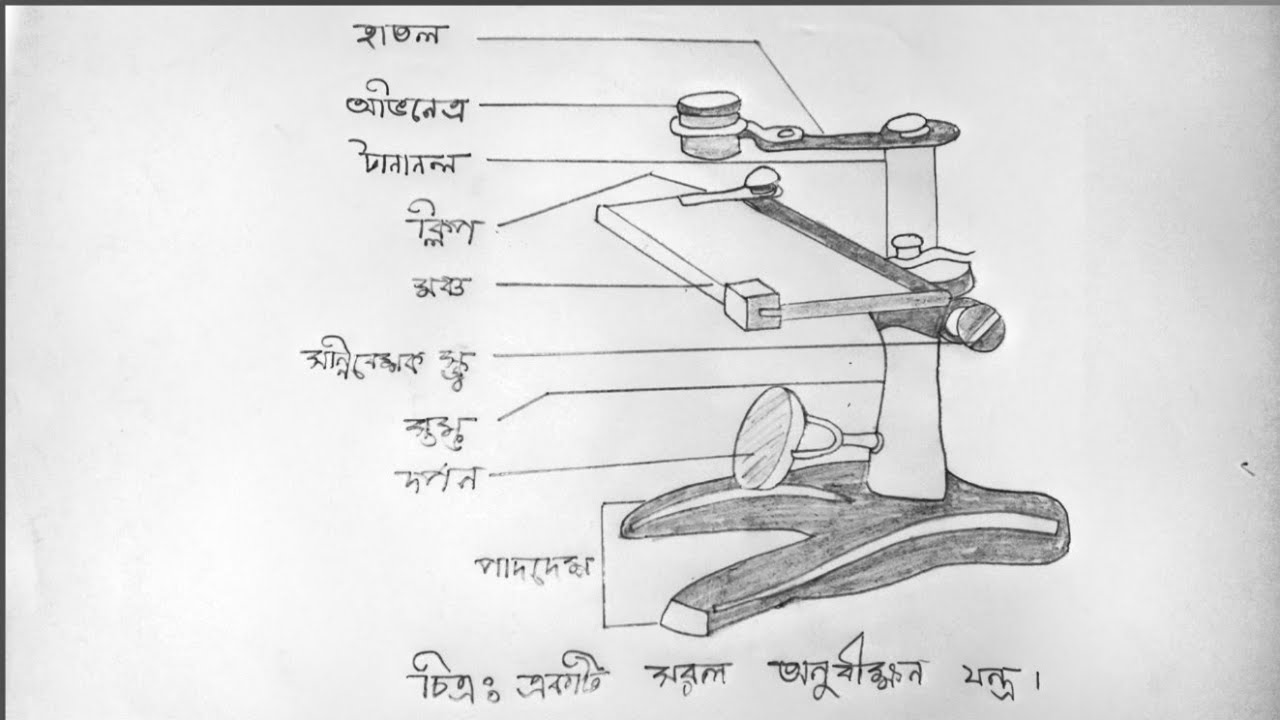 হাতল
অভিনেত্র
টানানল
ক্লিপ
মঞ্চ
সন্নিবেশক স্ক্রু
স্তম্ভ
দর্পন
পাদদেশ
চিত্রঃ একটি সরল অনুবীক্ষন যন্ত্র।